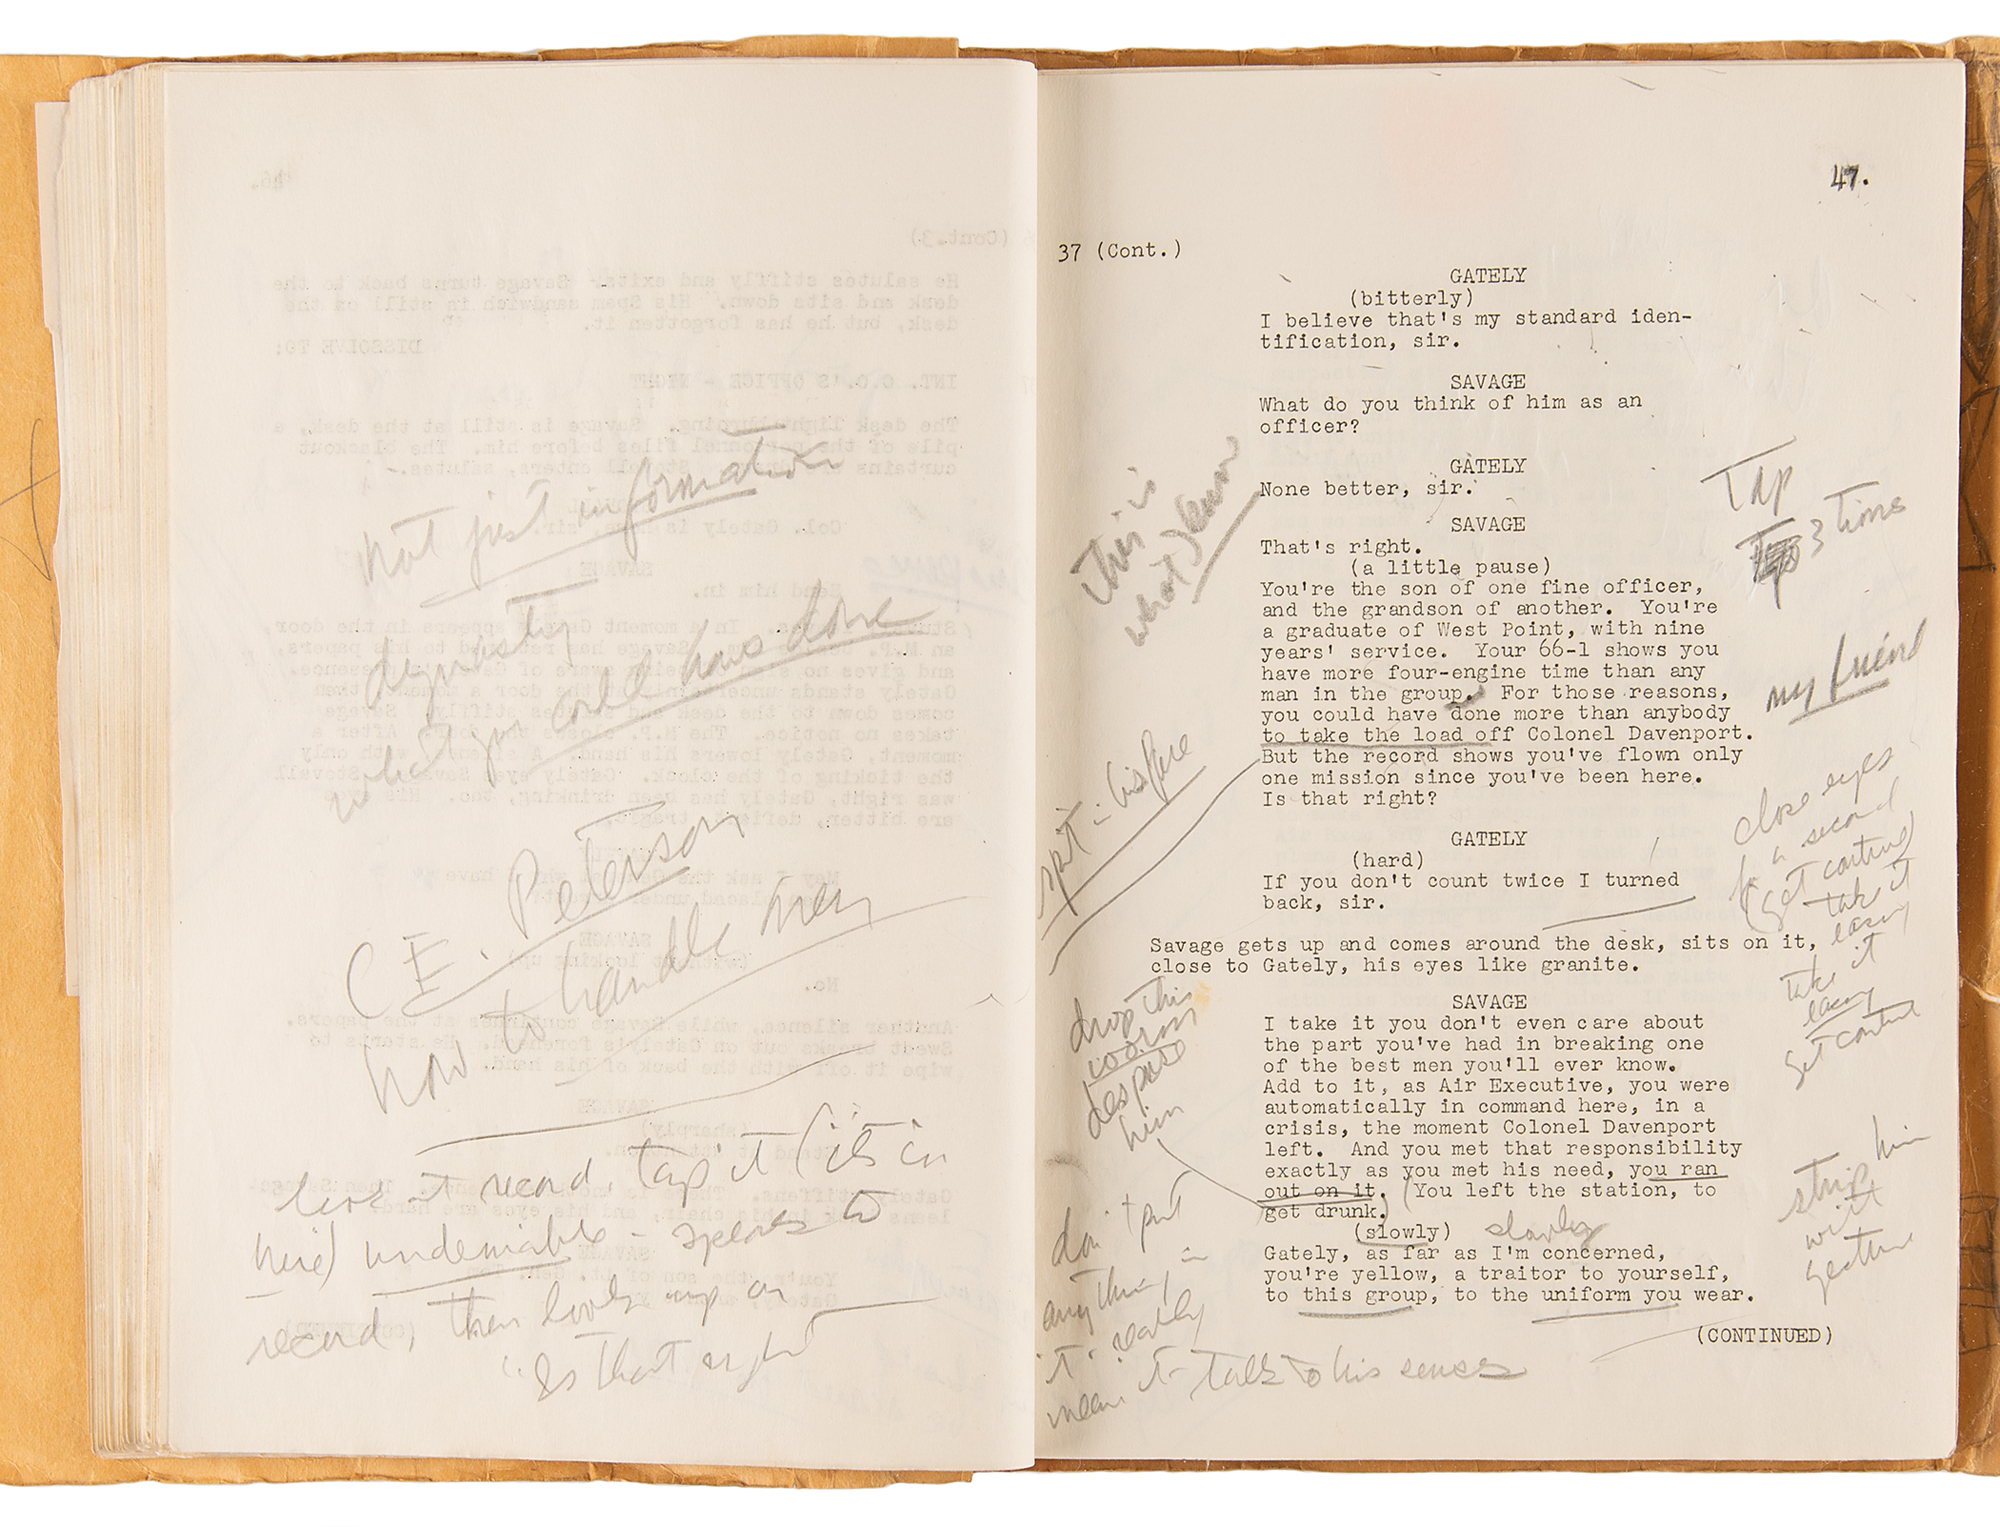 not just information
dynasty
what you could have done
C E. Peterson
how to handle men
look at record, tap it (it's in
his) undeniable - speaks to
record, then looks up on
"Is that right
47.
37 (Cont.)
GATELY
(bitterly)
I believe that's my standard iden-
tification, sir.
SAVAGE
What do you think of him as an
officer?
GATELY
None better, sir.
SAVAGE
That's right.
(a little pause)
You're the son of one fine officer,
and the grandson of another. You're
a graduate of West Point, with nine
years' service. Your 66-1 shows you
have more four-engine time than any
man in the group. For those reasons,
you could have done more than anybody
to take the load off Colonel Davenport.
But the record shows you've flown only
one mission since you've been here.
Is that right?
GATELY
(hard)
If you don't count twice I turned
back, sir.
Savage gets up and comes around the desk, sits on it,
close to Gately, his eyes like granite.
SAVAGE
I take it you don't even care about
the part you've had in breaking one
of the best men you'll ever know.
Add to it, as Air Executive, you were
automatically in command here, in a
crisis, the moment Colonel Davenport
left. And you met that responsibility
exactly as you met his need, you ran
out on it. (You left the station, to
get drunk.)
(slowly) slowly
Gately, as far as I'm concerned,
you're yellow, a traitor to yourself,
to this group, to the uniform you wear.
(CONTINUED)
This is
what
spit - his face
drop this
despise
him
don't put
anything in
it - really
mean it - talk to his senses
Tap
3 times
my friend
close eyes
for a second
(get control
take it
easy
take it
easy
get control
strip him
with
gesture